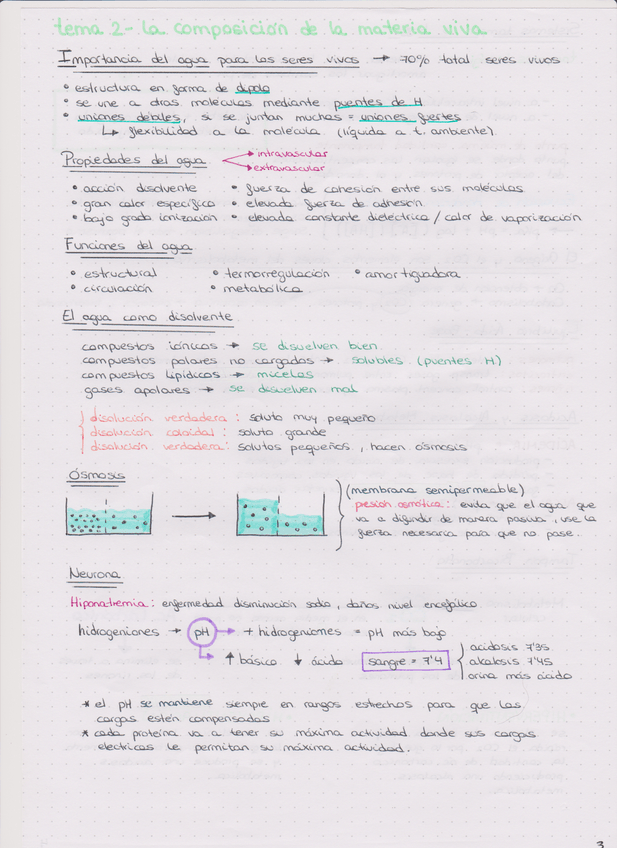 tema 2- la composición de la materia viva
Importancia del agua para los seres vivos → 70% total seres vivos
• estructura en forma de dipolo
• se une a otras moléculas mediante puentes de H
• uniones debiles, si se juntan muchas = uniones fuertes
↳ flexibilidad a la molécula (líquida a t. ambiente)
Propiedades del agua → intravascular
→ extravascular
• acción disolvente • fuerza de cohesión entre sus moléculas
• gran calor específico • elevada fuerza de adhesión
• bajo grado ionización • elevada constante dieléctrica / calor de vaporización
Funciones del agua
• estructural • termorregulación • amortiguadora
• circulación • metabólica
El agua como disolvente
compuestos iónicos → se disuelven bien
compuestos polares no cargados → solubles (puentes H)
compuestos lipídicos → micelas
gases apolares → se disuelven mal
disolución verdadera: soluto muy pequeño
disolución coloidal: soluto grande
disolución verdadera: solutos pequeños, hacen ósmosis
Ósmosis
(membrana semipermeable)
presión osmótica: evita que el agua que
va a difundir de manera pasiva, use la
fuerza necesaria para que no pase.
Neurona
Hiponatremia: enfermedad disminución sodio, daños nivel encefálico
hidrogeniones → pH → + hidrogeniones = pH más bajo
↳ ↑ básico ↓ ácido sangre = 7'4
acidosis 7'35
alkalosis 7'45
orina más ácido
* el pH se mantiene siempre en rangos estrechos para que las
cargas estén compensadas
* cada proteína va a tener su máxima actividad donde sus cargas
electricas le permitan su máxima actividad.
3